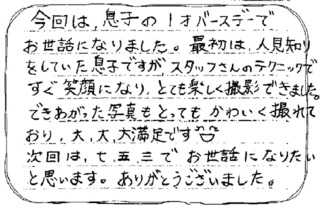 今回は、息子の1才バースデーで
お世話になりました。最初は、人見知り
をしていた息子ですが、スタッフさんのテクニックで
すぐ笑顔になり、とても楽しく撮影できました。
できあがった写真もとってもかわいく撮れて
おり、大、大、大満足です
次回は、七、五、三でお世話になりたい
と思います。ありがとうございました。